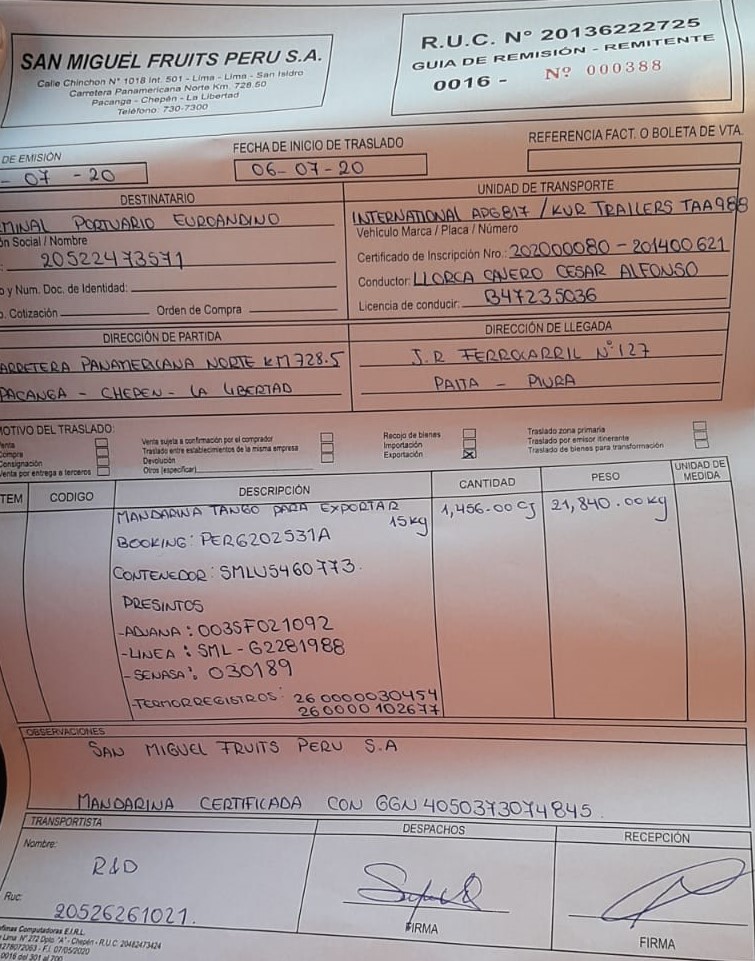 SAN MIGUEL FRUITS PERU S.A.
Calle Chinchon N° 1018 Int. 501 - Lima - Lima - San Isidro
Carretera Panamericana Norte Km. 728.50
Pacanga - Chepén - La Libertad
Teléfono: 730-7300
R.U.C. N° 20136222725
GUIA DE REMISIÓN - REMITENTE
0016 - Nº 000388
DE EMISIÓN
- 07 - 20
FECHA DE INICIO DE TRASLADO
06-07-20
REFERENCIA FACT. O BOLETA DE VTA.
DESTINATARIO
MINAL PORTUARIO EUROANDINO
ón Social / Nombre
: 20522473571
o y Num. Doc. de Identidad:
. Cotización Orden de Compra
UNIDAD DE TRANSPORTE
INTERNATIONAL APG817 / KUR TRAILERS TAA988
Vehículo Marca / Placa / Número
Certificado de Inscripción Nro.: 202000080 - 201400621
Conductor: LLORCA CAJERO CESAR ALFONSO
Licencia de conducir: B47235036
DIRECCIÓN DE PARTIDA
ARRETERA PANAMERICANA NORTE KM 728.5
PACANGA - CHEPEN - LA LIBERTAD
DIRECCIÓN DE LLEGADA
J.R FERROCARRIL N°127
PAITA - PIURA
MOTIVO DEL TRASLADO:
Venta
Compra
Consignación
Venta por entrega a terceros
Venta sujeta a confirmación por el comprador
Traslado entre establecimientos de la misma empresa
Devolución
Otros [especificar]
Recojo de bienes
Importación
Exportación X
Traslado zona primaria
Traslado por emisor itinerante
Traslado de bienes para transformación
TEM CODIGO DESCRIPCIÓN CANTIDAD PESO UNIDAD DE MEDIDA
MANDARINA TANGO PARA EXPORTAR 1,456.00 CJ 21,840.00 kg
15kg
BOOKING: PER6202531A
CONTENEDOR: SMLU5460773.
PRESINTOS
-ADUANA: 003SF021092
-LINEA: SML - G2281988
-SENASA: 030189
-TERMORREGISTROS: 260000030454
260000102677
OBSERVACIONES
SAN MIGUEL FRUITS PERU S.A
MANDARINA CERTIFICADA CON GGN 4050373074845.
TRANSPORTISTA
Nombre:
R&D
Ruc:
20526261021.
DESPACHOS
FIRMA
RECEPCIÓN
FIRMA
Computadoras E.I.R.L.
Lima N° 272 Dpto. "A" - Chepén - R.U.C. 20482473424
1278072063 - F.I. 07/05/2020
0016 del 301 al 700